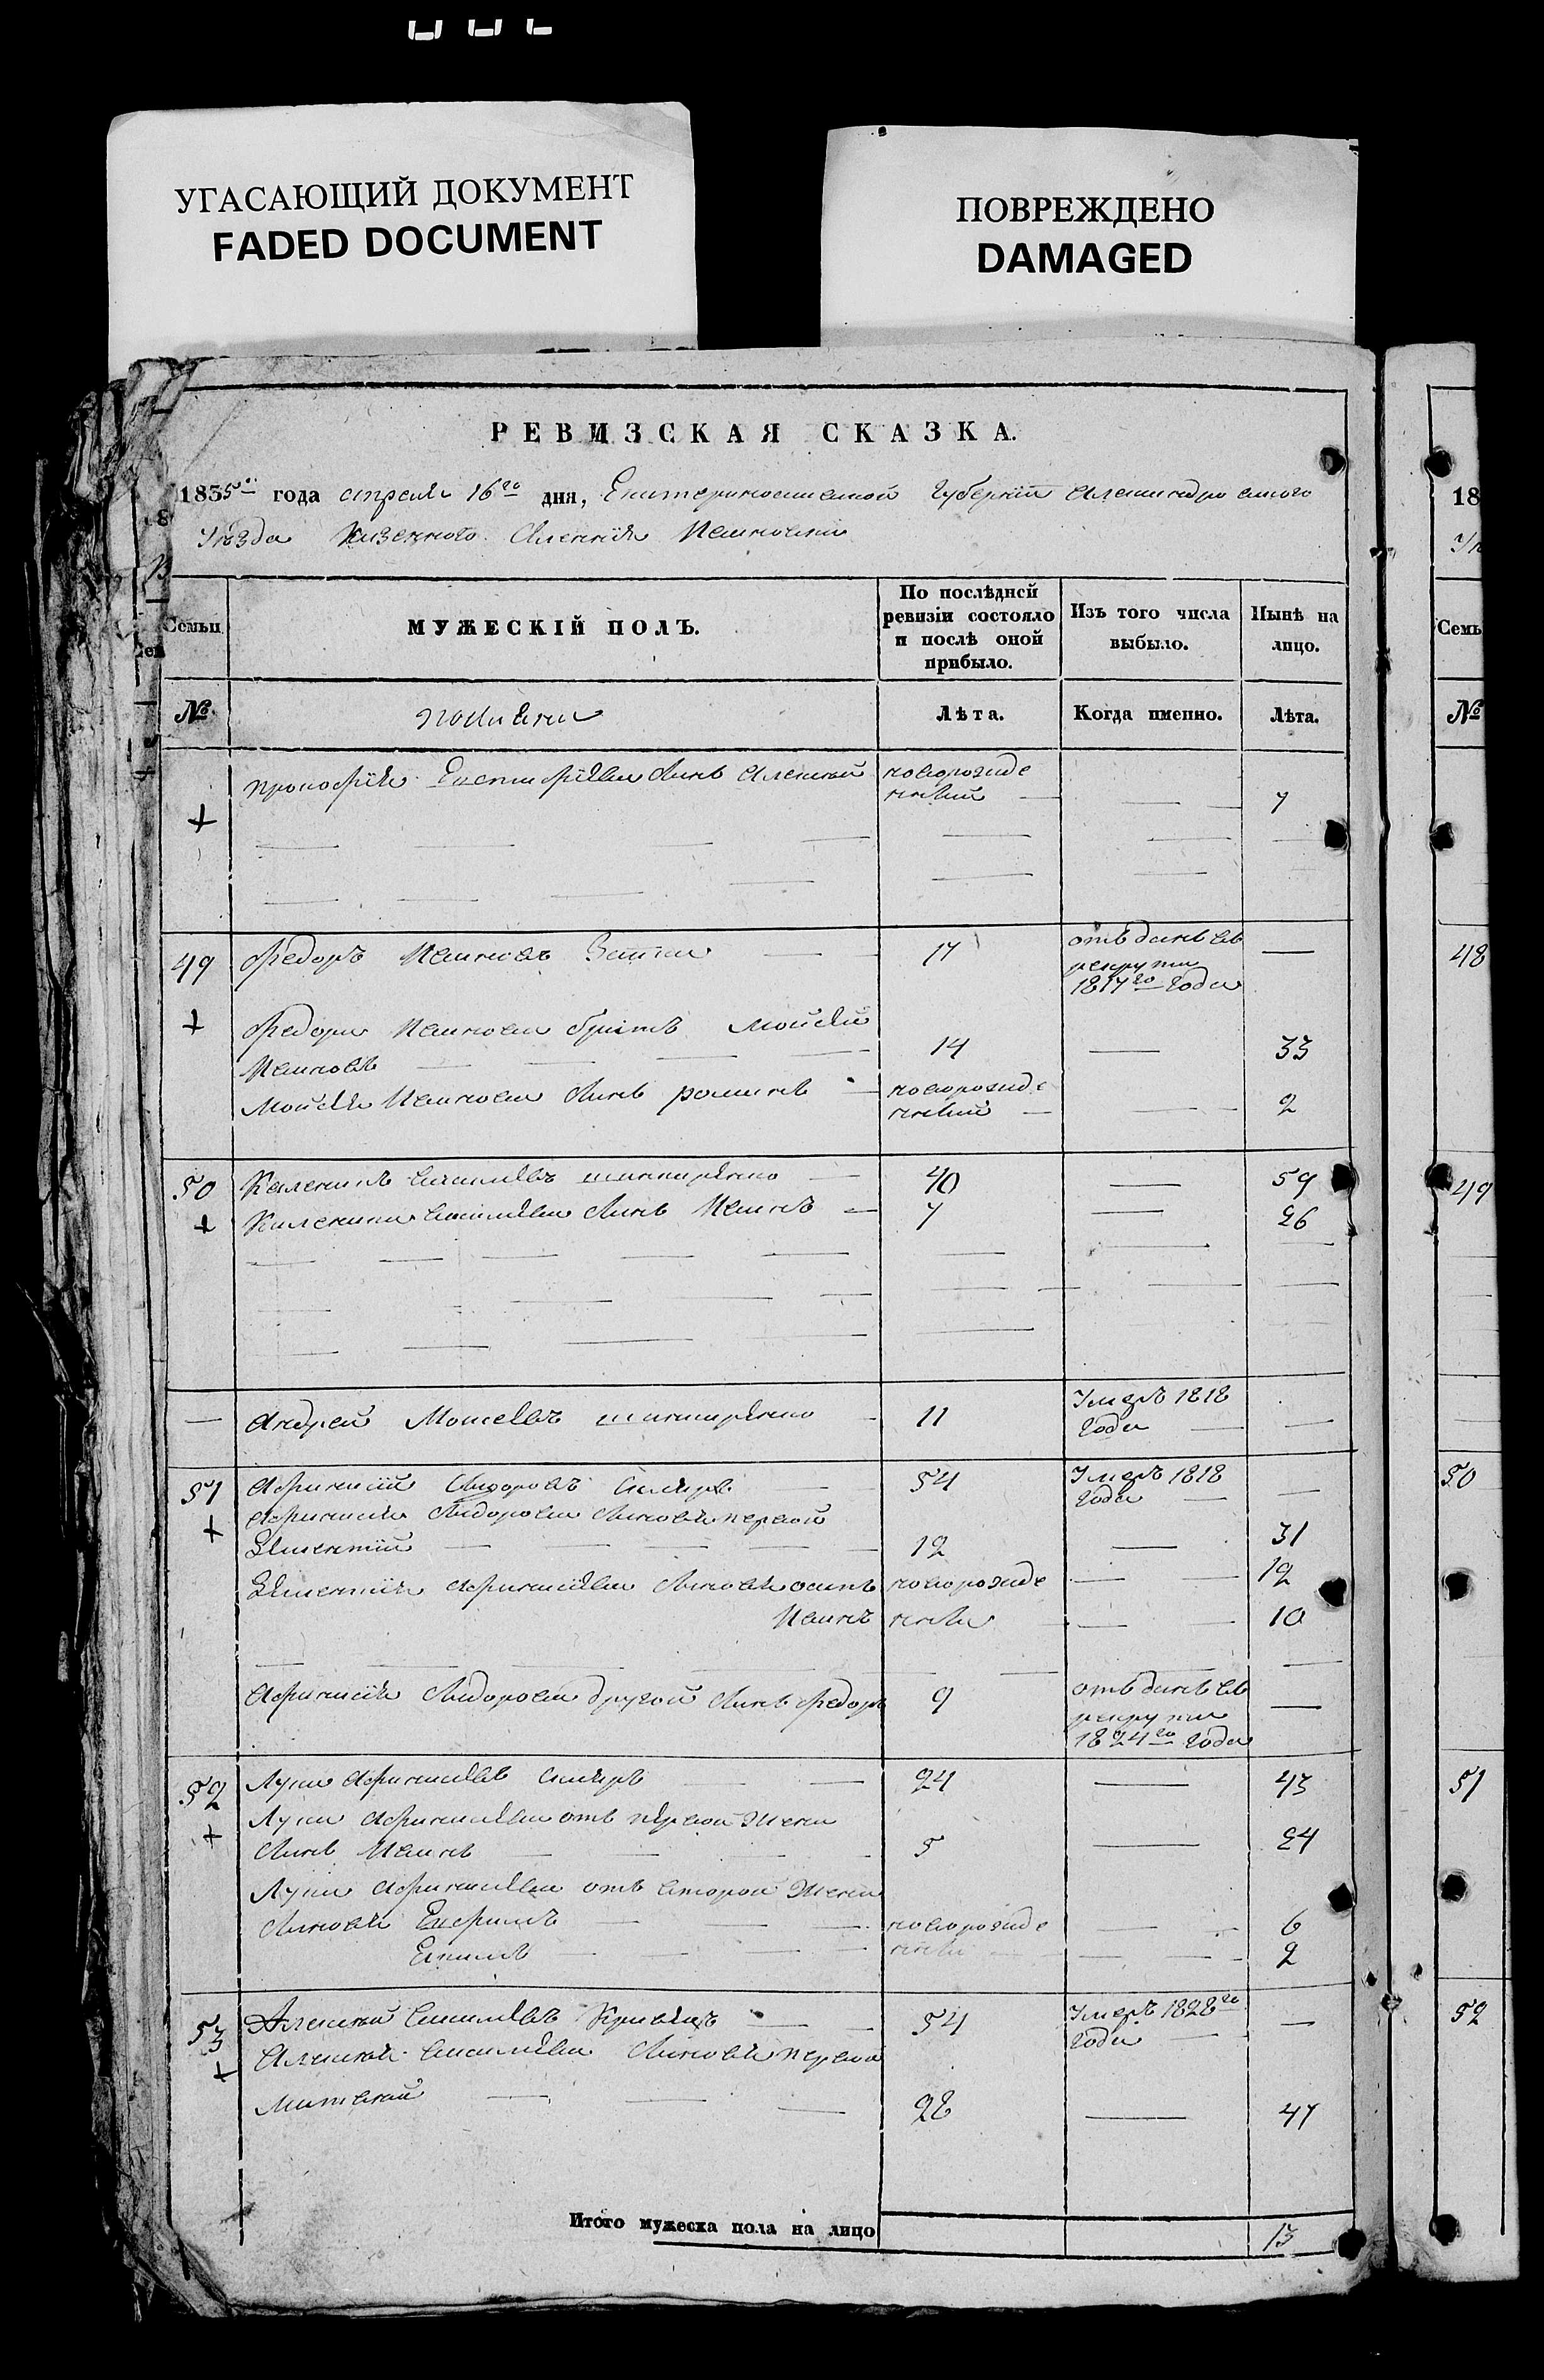 УГАСАЮЩИЙ ДОКУМЕНТ
FADED DOCUMENT
ПОВРЕЖДЕНО
DAMAGED
РЕВИЗСКАЯ СКАЗКА.
1835го года апреля 16го дня, Екатериносlавской Губернии Александровского
Уезда Казенного Селения
Семьи МУЖЕСКІЙ ПОЛЪ. По послѣдней ревизіи состояло и послѣ оной прибыло. Изъ того числа выбыло. Нынѣ на лицо.
№ Лѣта. Когда именно. Лѣта.
Прокофия Сынъ Алексей новорожде
нный 7
49 Федоръ Ивановъ 17 отъданъ въ
рекруты
1817го года
Федора Иванова братъ Мойсей
Ивановъ 14 33
Мойсея Иванова Сынъ Романъ новорожде
нный 2
50 40 59
Сынъ Иванъ 7 26
Андрей 11 Умеръ 1818
года
51 Афанасий Сидоровъ 54 Умеръ 1818
года
Афанасия Сидорова Сыновья первой
12 31
Сыновья осипъ новорожде 12
Иванъ нны 10
Афанасия Сидорова другой Сынъ Федоръ 9 отъданъ въ
рекруты
1824го года
52 Лука Афанасьевъ 24 43
Луки Афанасьева отъ первой Жены
Сынъ Иванъ 5 24
Луки Афанасьева отъ второй Жены
Сыновья Ефимъ новорожде 6
нны 2
53 Алексей 54 Умеръ 1828го
года
Алексея Сыновья первой
Матвей 28 47
Итого мужеска пола на лицо 13
18
Семь
№
48
49
50
51
52